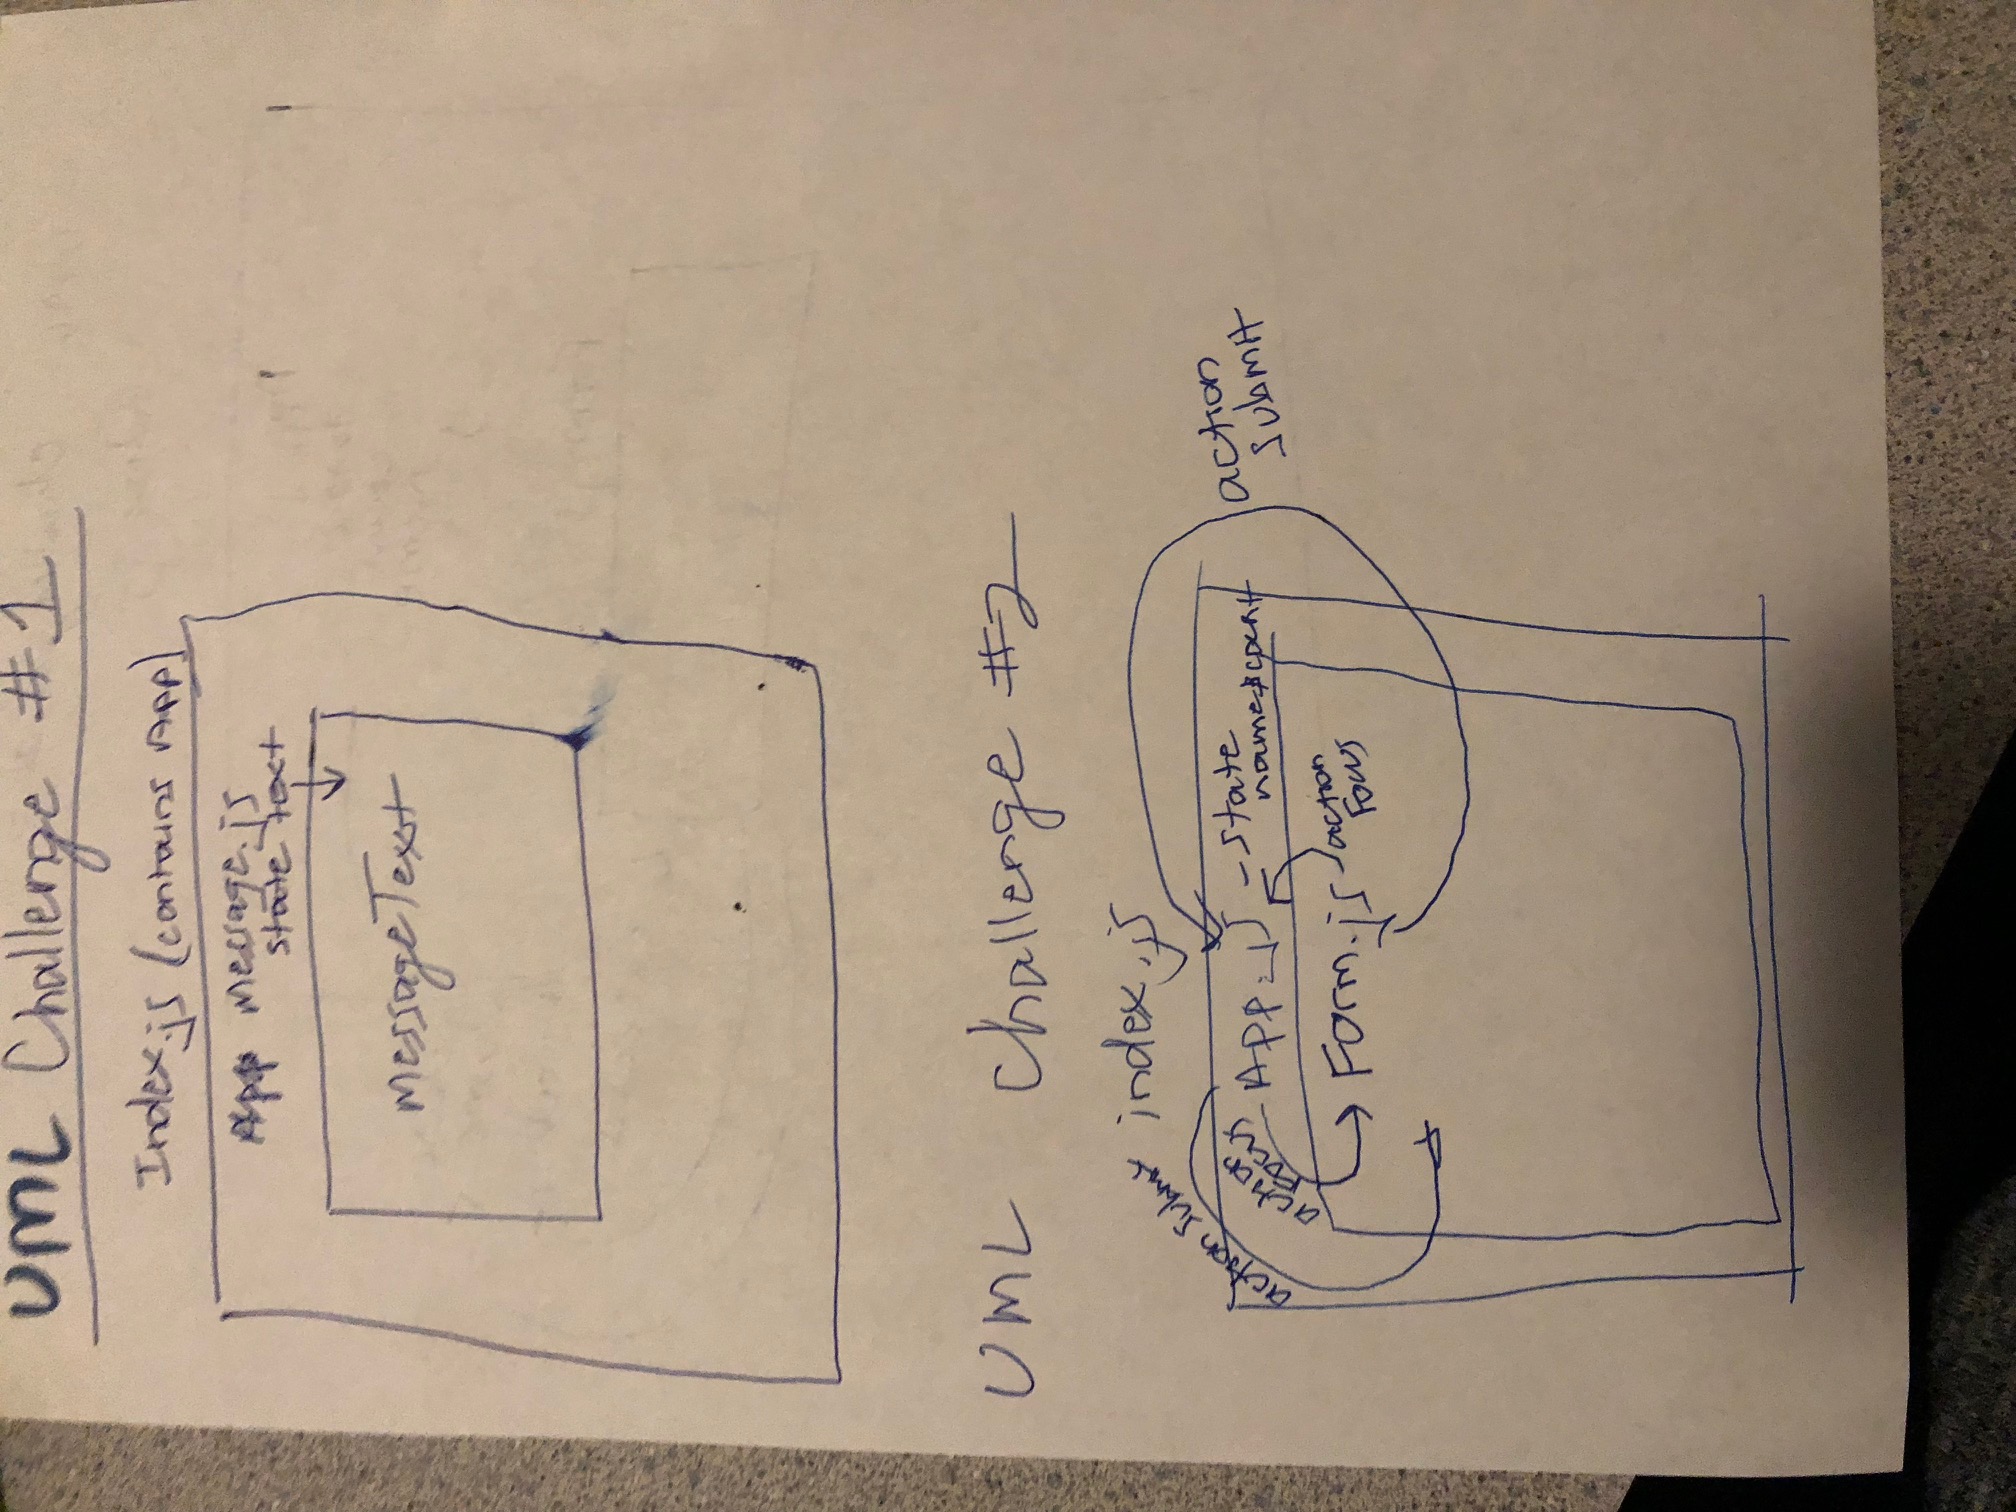 UML Challenge #1
Index.js (contains App)
App message.js
state text
messageText
UML Challenge #2
index.js
action submit
action
Focus
App.js - state
names count
action
submit
Form.js
action
Focus